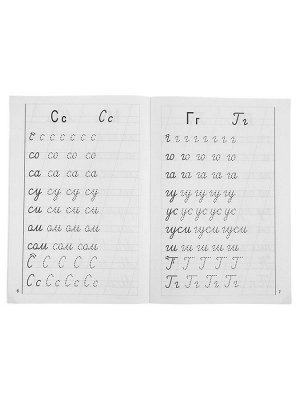 Сс Сс
с с с с с с
со со со со
са са са са
су су су су
си си си си
ом ом ом ом
сом сом сом
С С С С С
Сс Сс Сс Сс
6
Гг Гг
г г г г г г г
го го го го го
га га га га га
гу гу гу гу гу
ус ус ус ус ус
гуси гуси гуси
ги ги ги ги ги
Г Г Г Г Г
Гг Гг Гг Гг
7